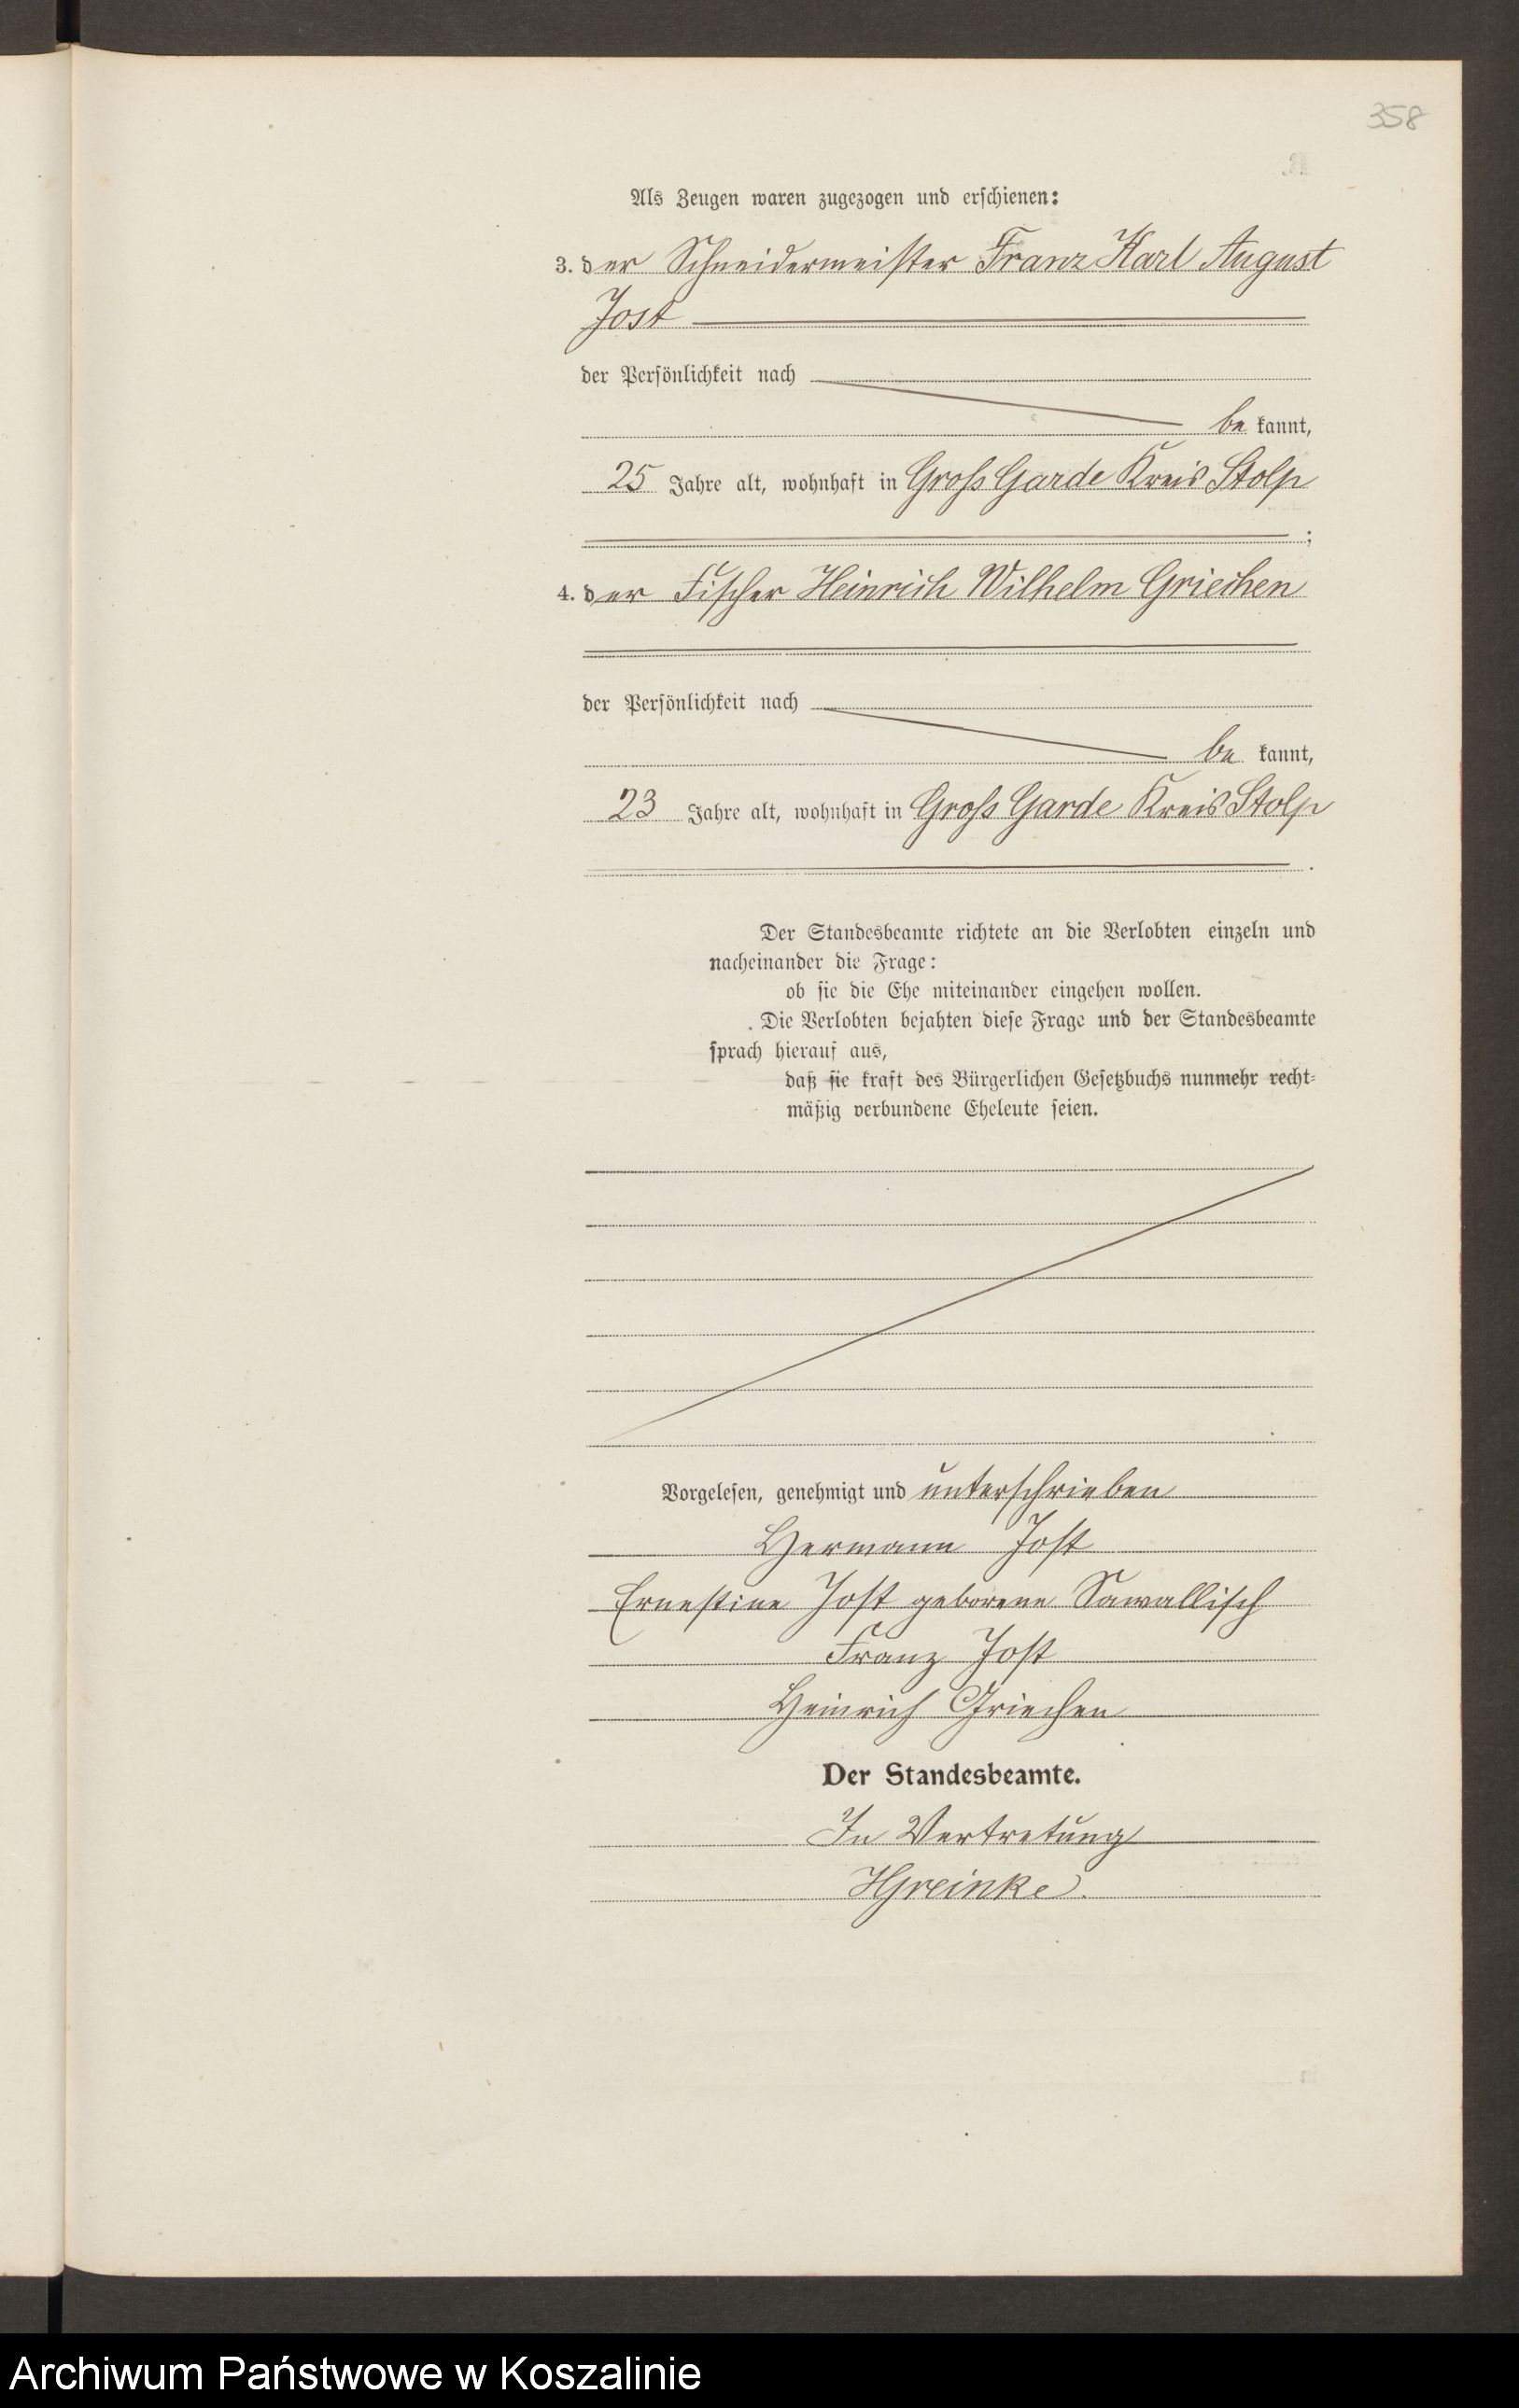 358
Als Zeugen waren zugezogen und erschienen:
3. der Schneidermeister Franz Karl August
Jost
der Persönlichkeit nach
be kannt,
25 Jahre alt, wohnhaft in Gross Garde Kreis Stolp
;
4. der Fischer Heinrich Wilhelm Griechen
der Persönlichkeit nach
be kannt,
23 Jahre alt, wohnhaft in Gross Garde Kreis Stolp
.
Der Standesbeamte richtete an die Verlobten einzeln und
nacheinander die Frage:
ob sie die Ehe miteinander eingehen wollen.
Die Verlobten bejahten diese Frage und der Standesbeamte
sprach hierauf aus,
daß sie kraft des Bürgerlichen Gesetzbuchs nunmehr recht-
mäßig verbundene Eheleute seien.
Vorgelesen, genehmigt und unterschrieben
Hermann Jost
Ernestine Jost geborene Sawallisch
Franz Jost
Heinrich Griechen
Der Standesbeamte.
In Vertretung
HGreinke.
Archiwum Państwowe w Koszalinie